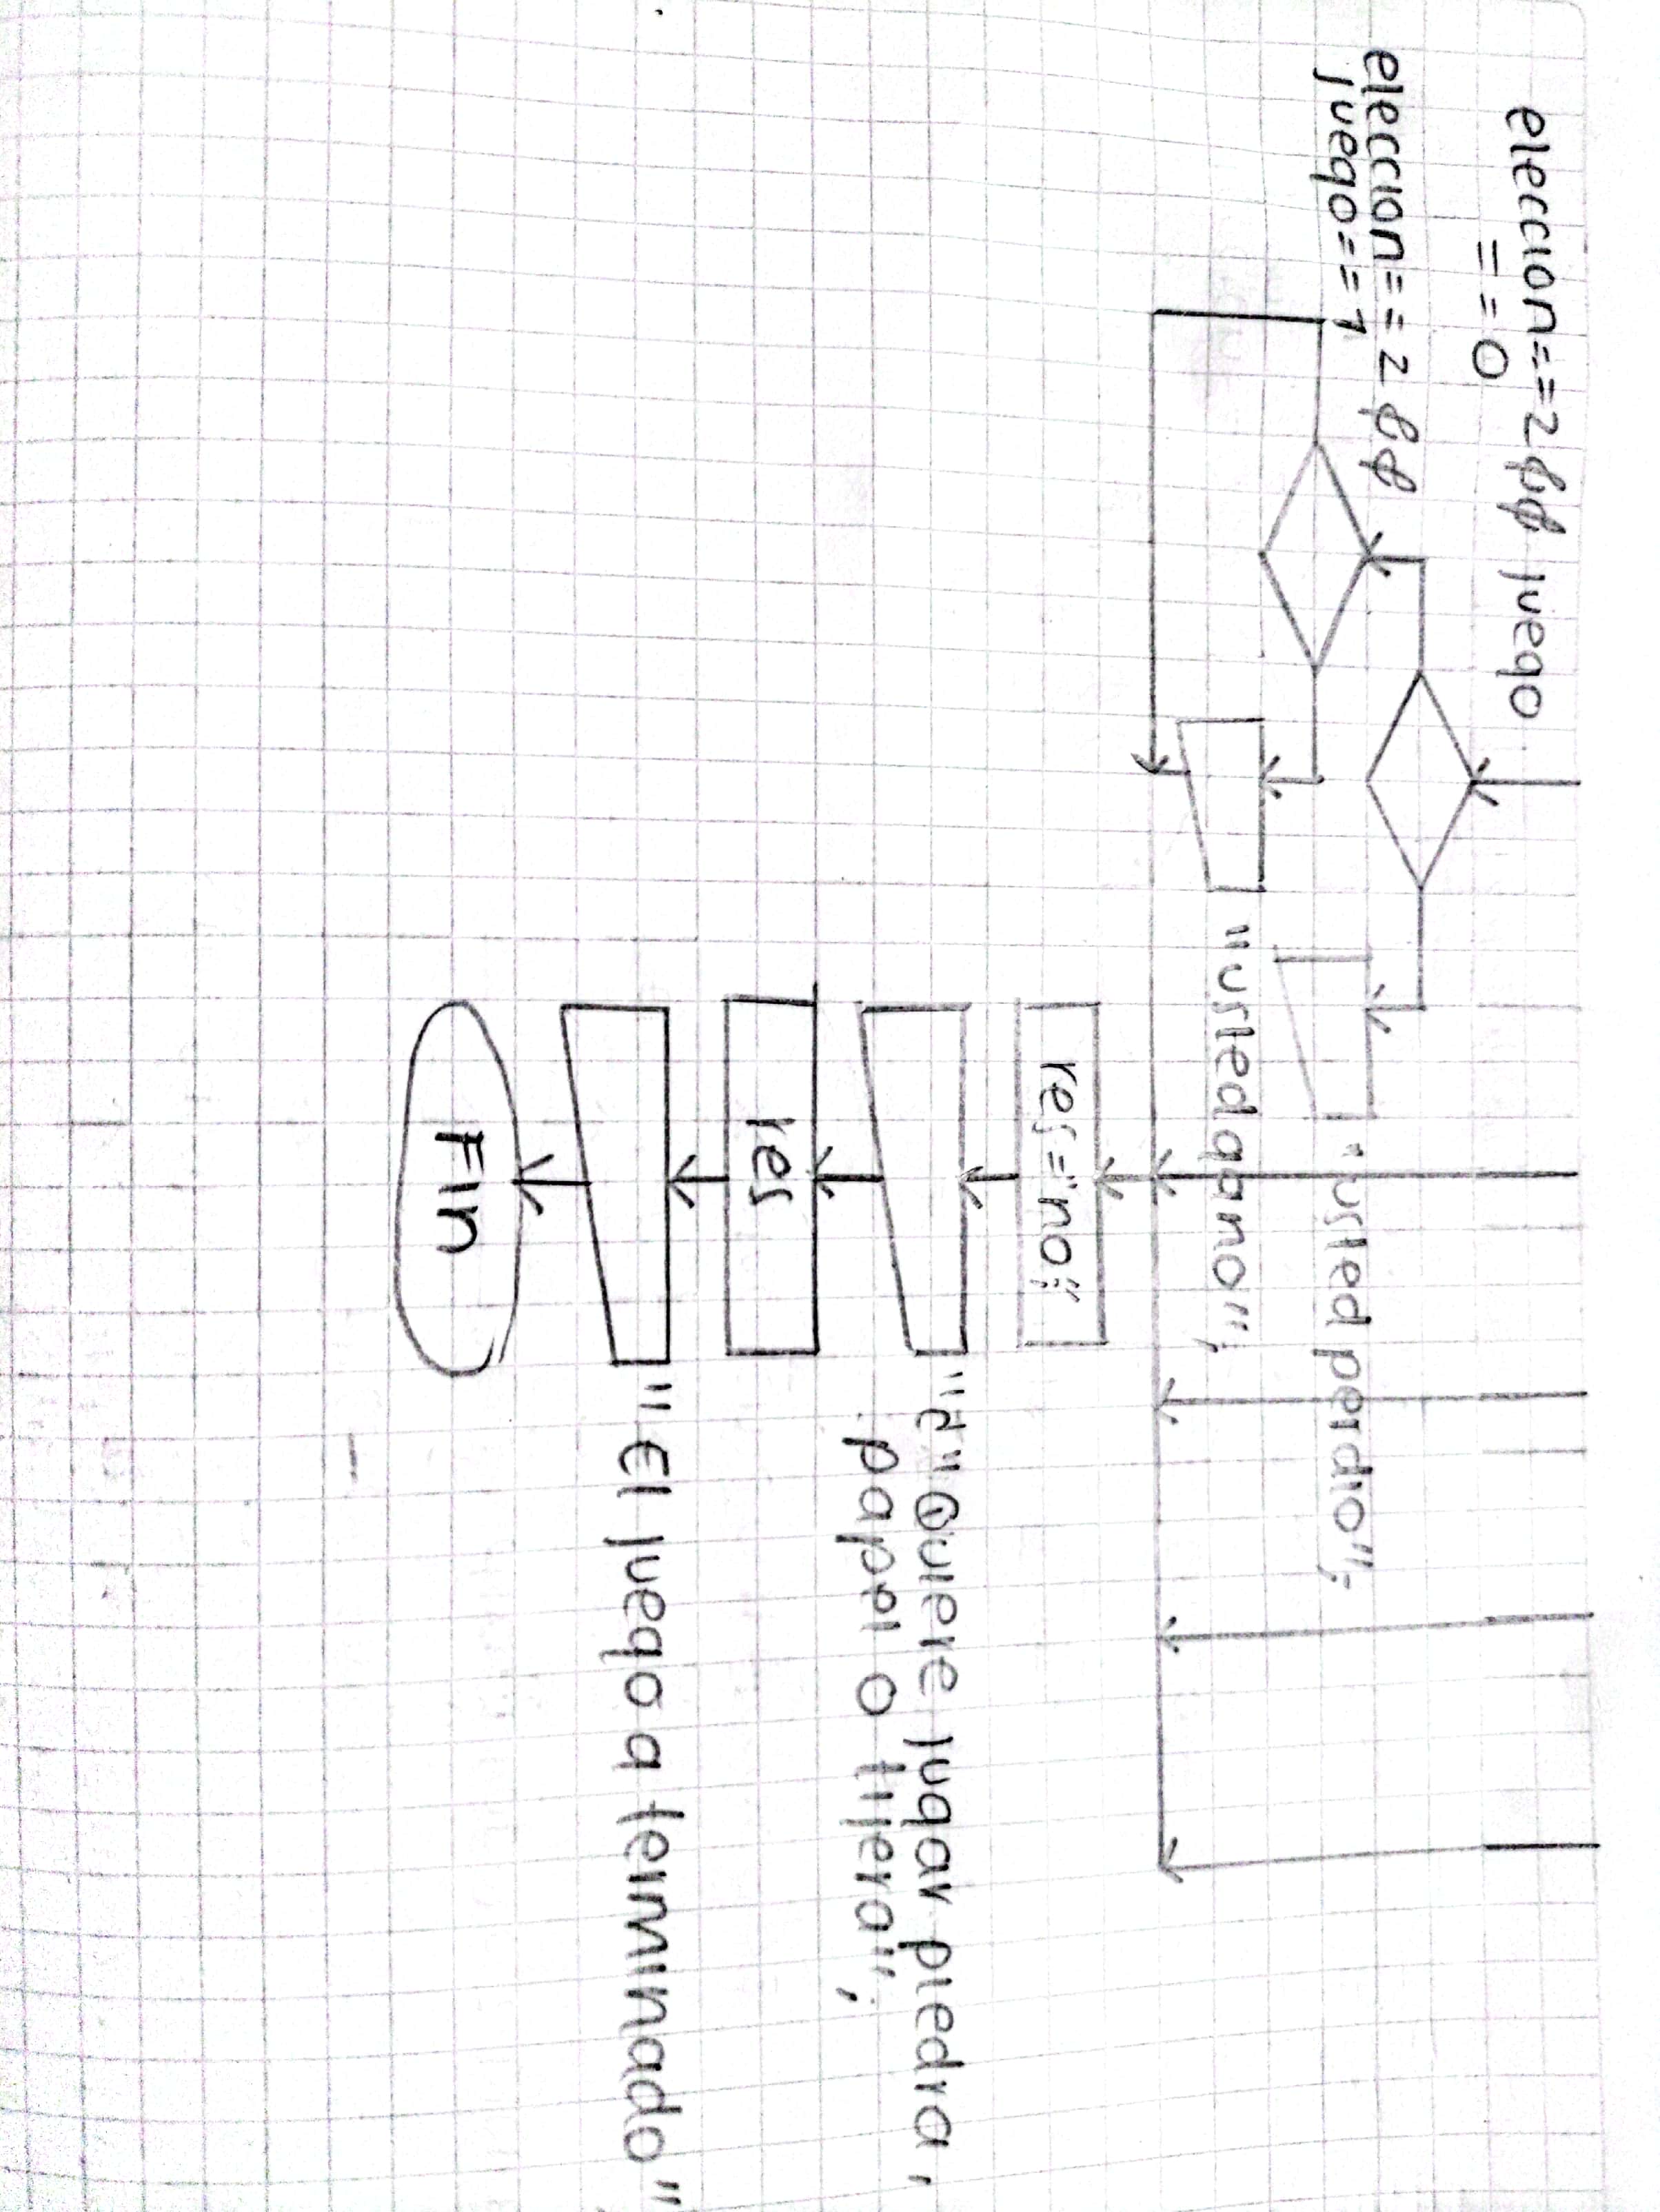 eleccion==2 && juego
==0
eleccion==2 &&
juego==1
"usted perdio";
"usted gano";
res="no;"
"¿" Quiere jugar piedra,
papel o tijera";
res
"El juego a terminado"
Fin